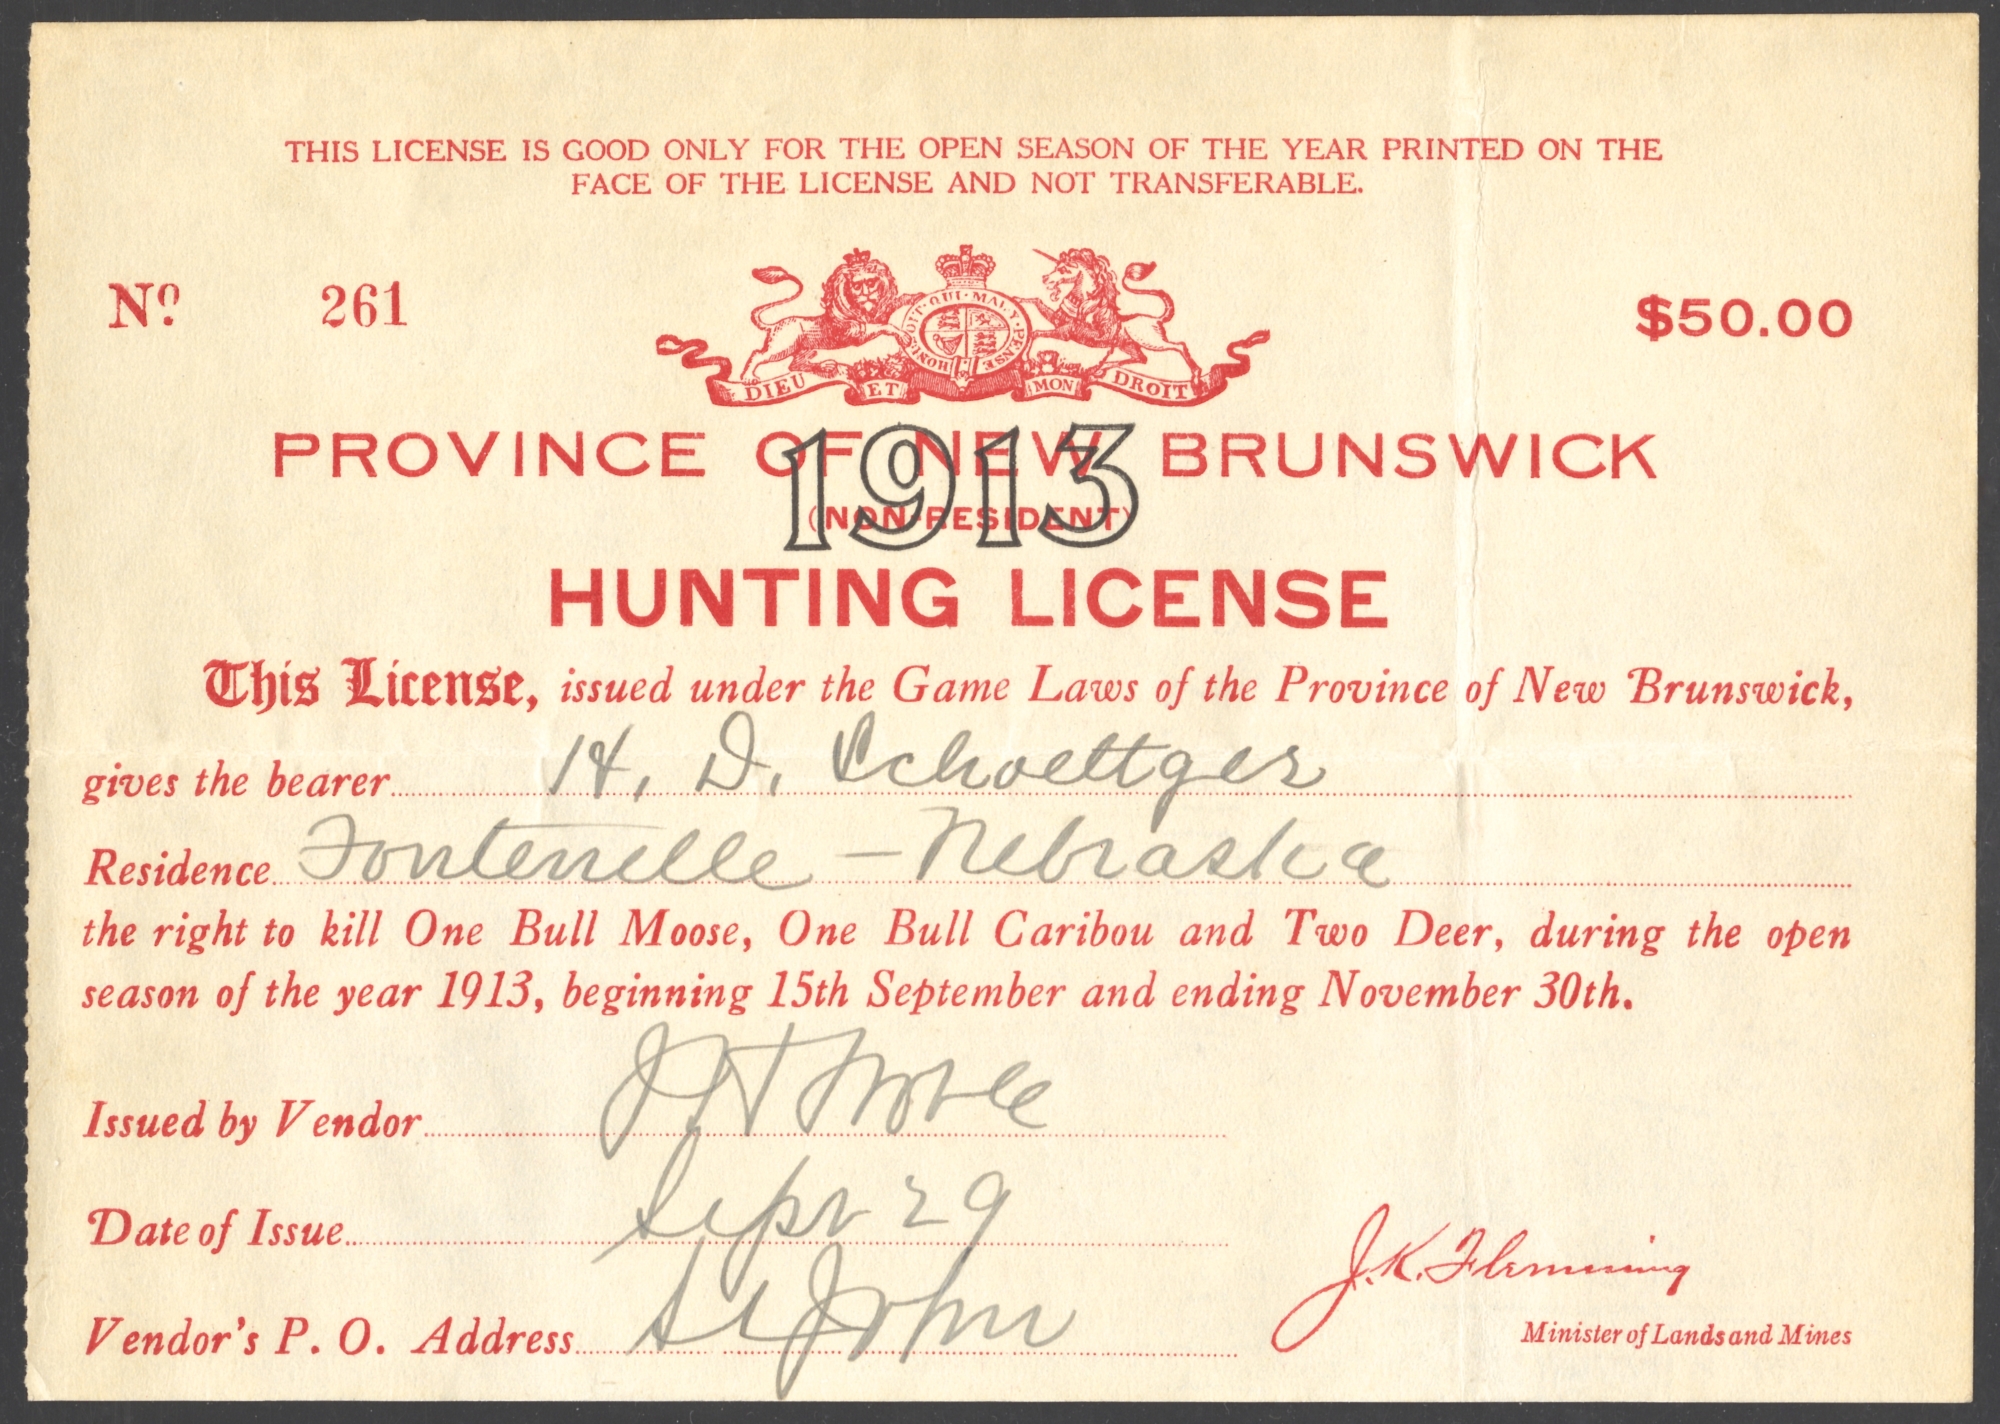 THIS LICENSE IS GOOD ONLY FOR THE OPEN SEASON OF THE YEAR PRINTED ON THE
FACE OF THE LICENSE AND NOT TRANSFERABLE.
No. 261
$50.00
HONI · SOIT · QUI · MAL · Y · PENSE
DIEU ET MON DROIT
PROVINCE OF NEW BRUNSWICK
1913
(NON-RESIDENT)
HUNTING LICENSE
This License, issued under the Game Laws of the Province of New Brunswick,
gives the bearer H. D. Schoettger
Residence Fontenelle — Nebraska
the right to kill One Bull Moose, One Bull Caribou and Two Deer, during the open
season of the year 1913, beginning 15th September and ending November 30th.
Issued by Vendor
Date of Issue Sept 29
Vendor's P. O. Address St John
J. K. Flemming
Minister of Lands and Mines